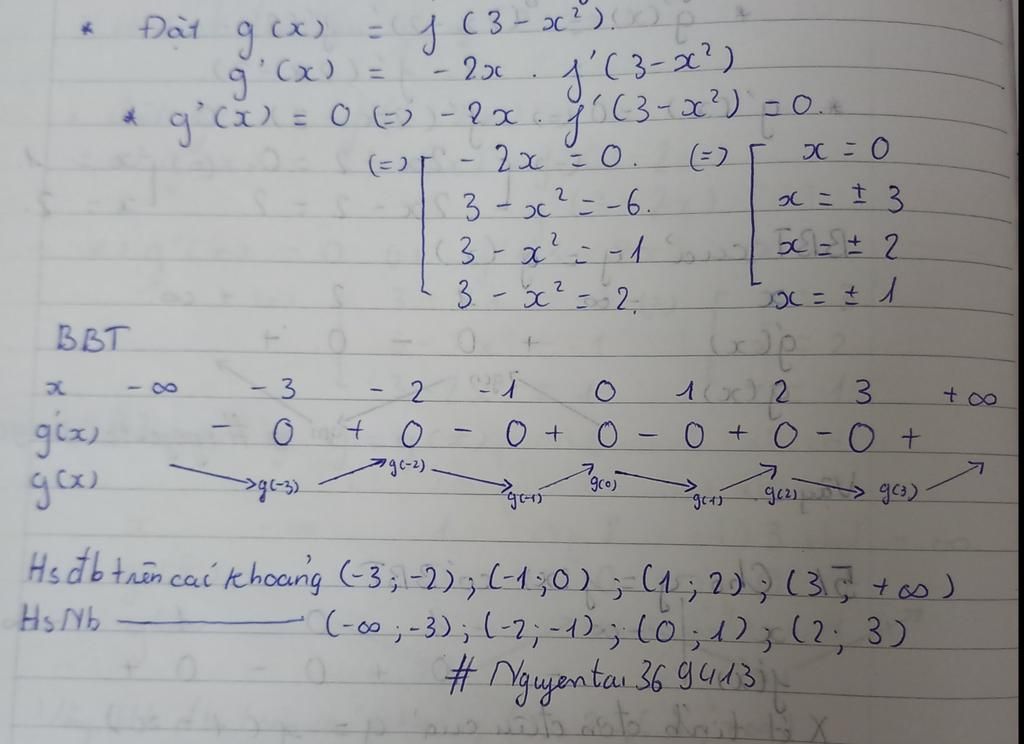 * Đặt g(x) = f(3-x²).
g'(x) = - 2x . f'(3-x²)
* g'(x) = 0 (=) - 2x . f'(3-x²) = 0.
(=) [ - 2x = 0. (=) [ x = 0
3 - x² = -6. x = ± 3
3 - x² = -1 x = ± 2
3 - x² = 2. x = ± 1
BBT
x -∞ -3 -2 -1 0 1 2 3 +∞
g'(x) - 0 + 0 - 0 + 0 - 0 + 0 - 0 +
g(x) g(-3) g(-2) g(-1) g(0) g(1) g(2) g(3)
Hs đb trên các khoảng (-3;-2); (-1;0); (1;2); (3; +∞)
HsNb (-∞;-3); (-2;-1); (0;1); (2; 3)
# Nguyentai369413